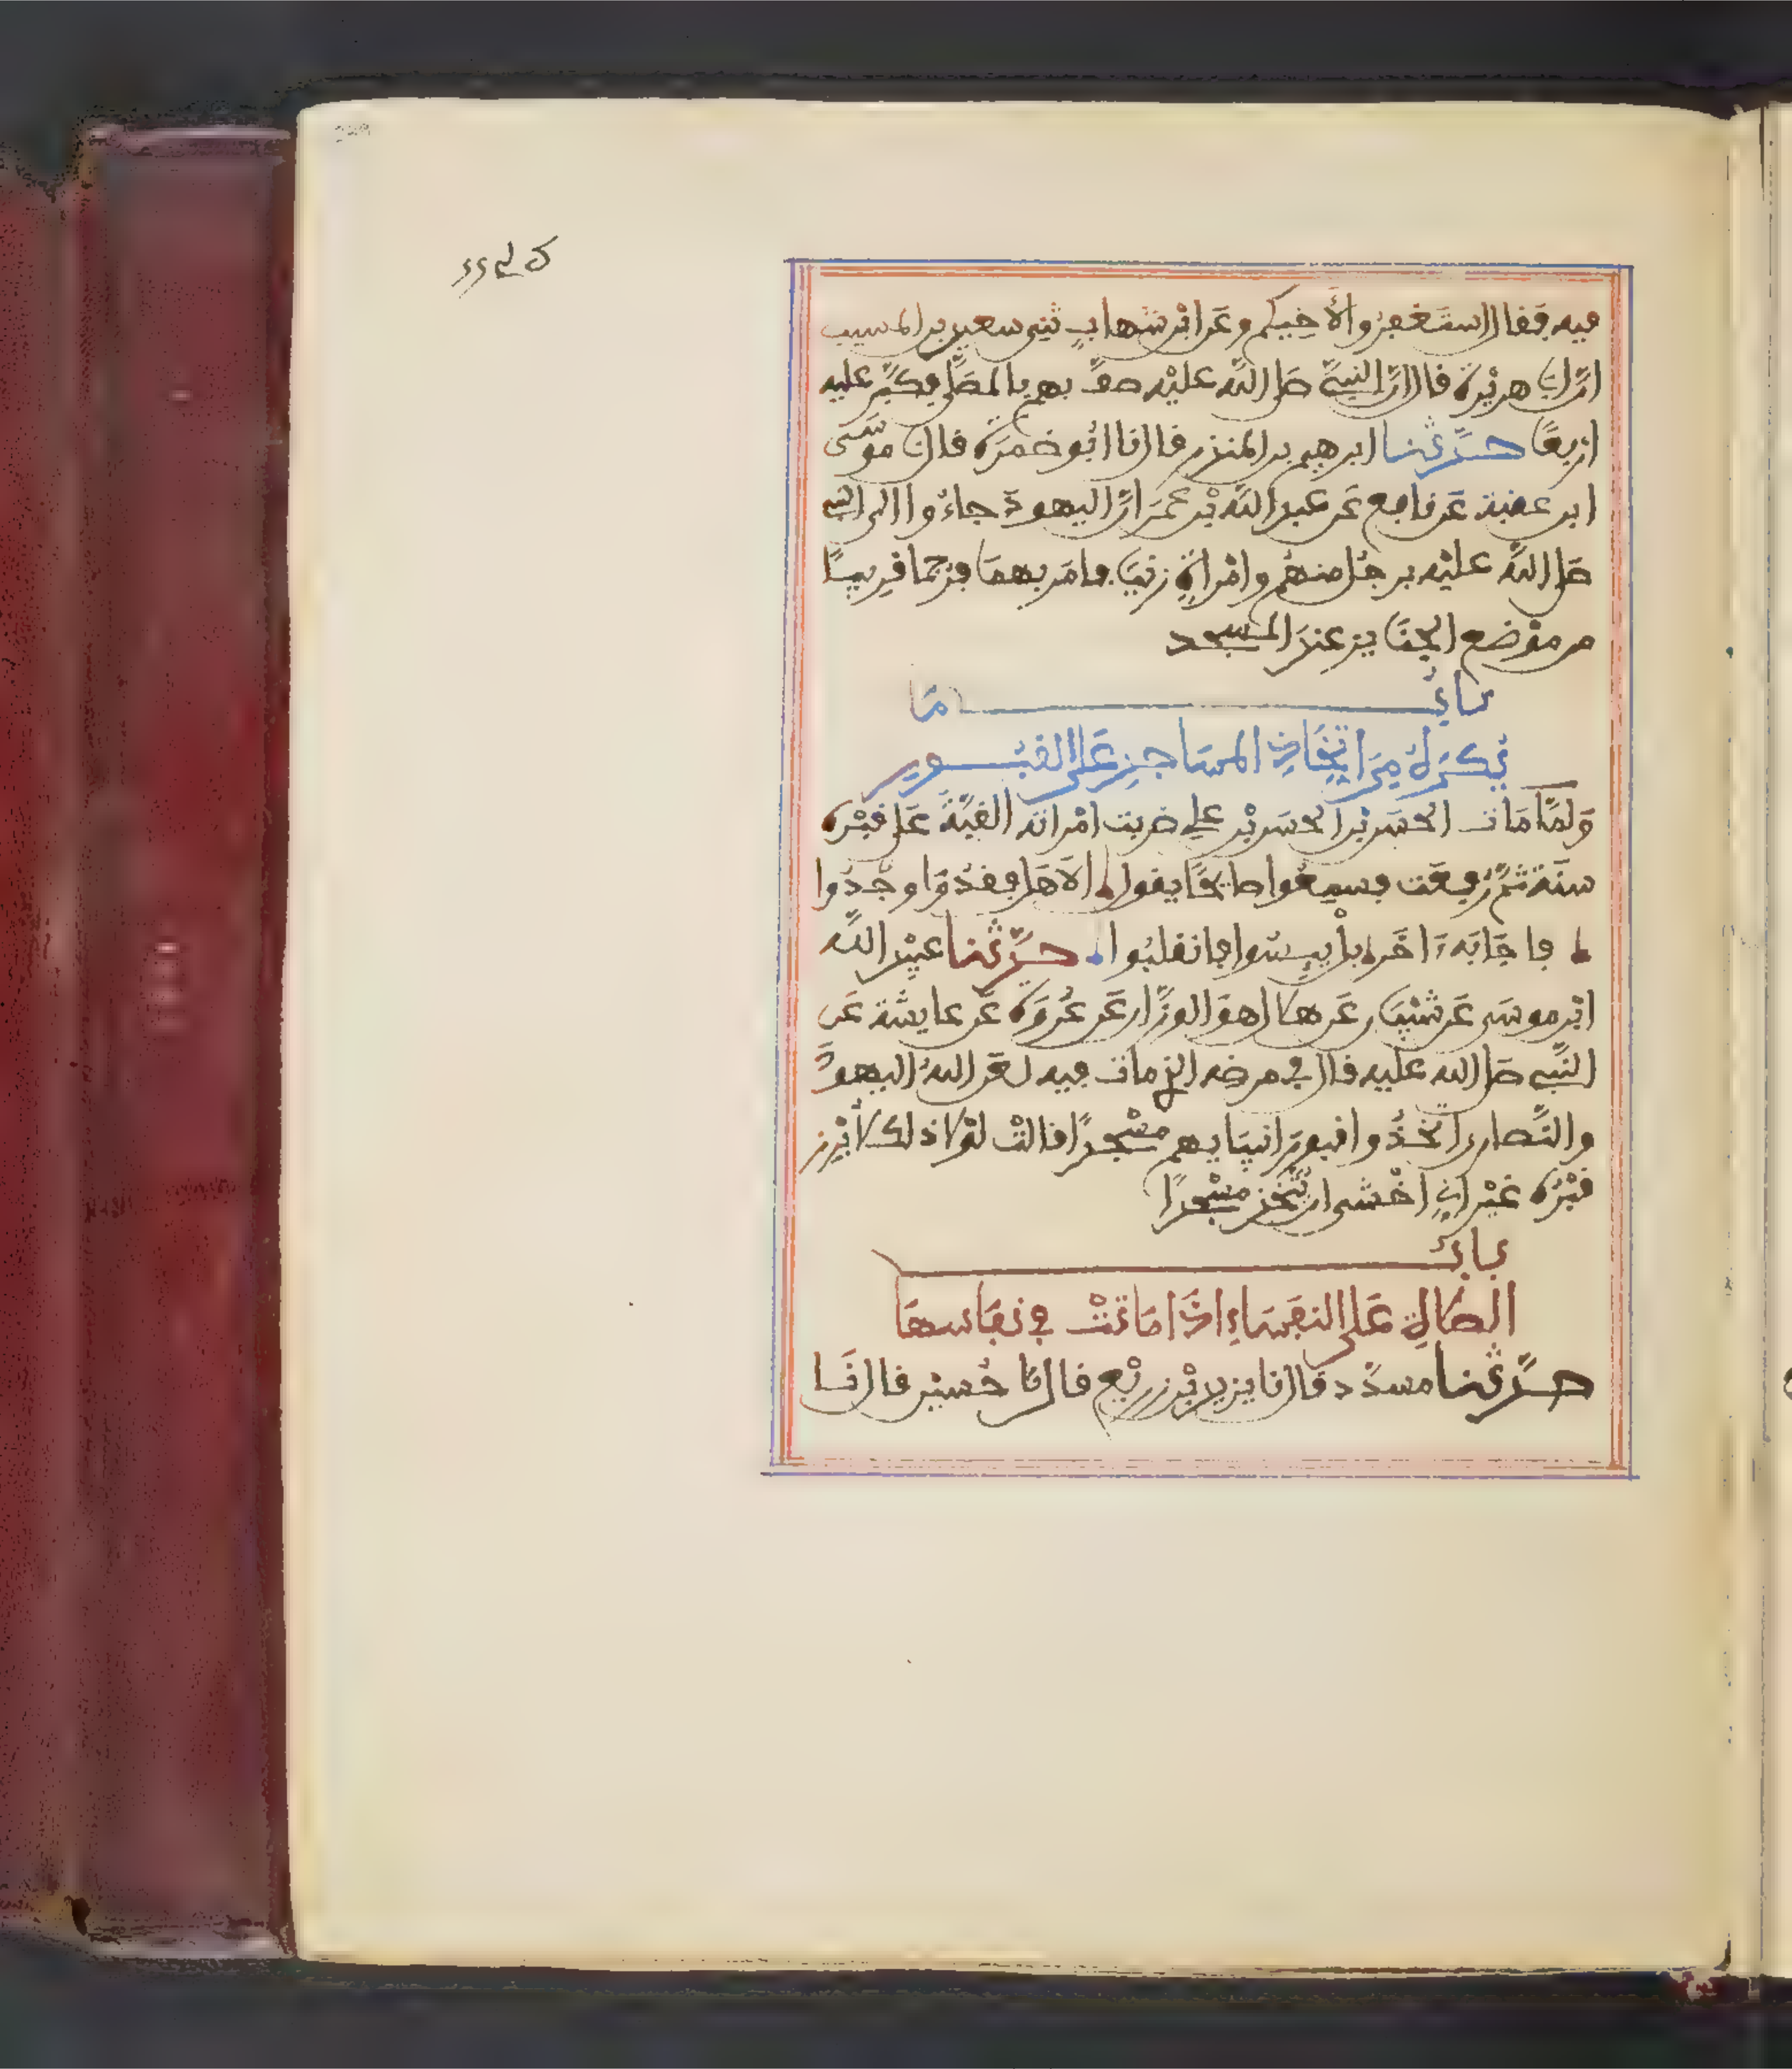 فيه فقال استغفروا لأخيكم وعن ابن شهاب ثني سعيد بن المسيب
ان ابا هريرة قال ان النبي صلى الله عليه صف بهم بالمصلى فكبر عليه
اربعا حدثنا ابرهيم بن المنذر قال نا ابو ضمرة قال نا موسى
ابن عقبة عن نافع عن عبد الله بن عمر ان اليهود جاءوا الى النبي
صلى الله عليه برجل منهم وامراة زنيا فامر بهما فرجما قريبا
من موضع الجنايز عند المسجد
باب ما
يكره من اتخاذ المساجد على القبور
ولما مات الحسن بن الحسن بن علي ضربت امراته القبة على قبره
سنة ثم رفعت فسمعوا صايحا يقول الا هل وجدوا ما فقدوا
فاجابه ءاخر بل يئسوا فانقلبوا حدثنا عبيد الله
ابن موسى عن شيبان عن هلال هو الوزان عن عروة عن عايشة عن
النبي صلى الله عليه قال في مرضه الذي مات فيه لعن الله اليهود
والنصارى اتخذوا قبور انبيايهم مسجدا قالت لولا ذلك لابرز
قبره غير اني اخشى ان يتخذ مسجدا
باب
الصلاة على النفساء اذا ماتت في نفاسها
حدثنا مسدد قال نا يزيد بن زريع قال نا حسين قال نا